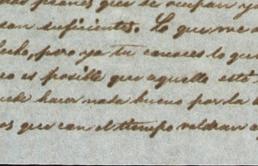 que se ocupan y
sean suficientes. Lo que me a
pero ya tu conoces lo que
es posible que aquello esté
hacer nada bueno por la
que con el tiempo valdran a